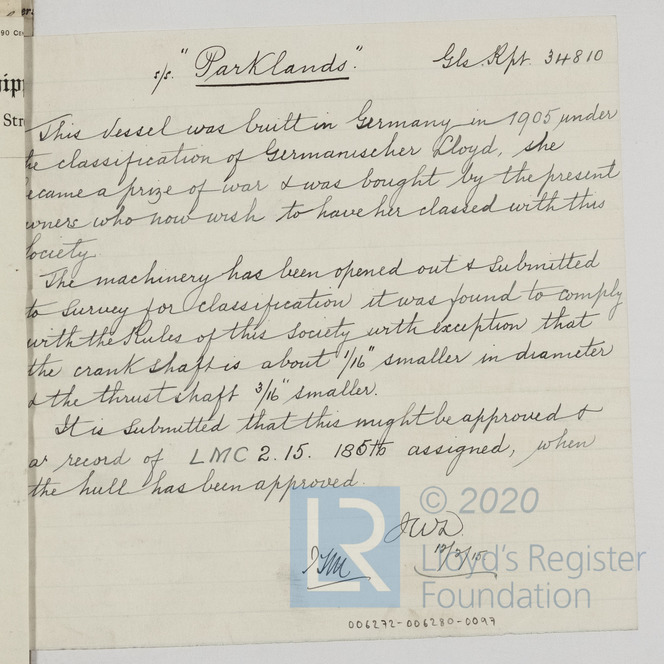 s/s. "Parklands". Gls. Rpt. 34810
This vessel was built in Germany in 1905 under
he classification of Germanischer Lloyd, she
ecame a prize of war & was bought by the present
wners who now wish to have her classed with this
Society.
The machinery has been opened out & submitted
to survey for classification it was found to comply
with the Rules of this Society with exception that
the crank shaft is about 1/16" smaller in diameter
& the thrust shaft 3/16" smaller.
It is submitted that this might be approved &
a record of LMC 2.15. assigned, when
the hull has been approved.
JWD.
12/2/15
© 2020
LR
Lloyd's Register
Foundation
006272-006280-0097
90
Str